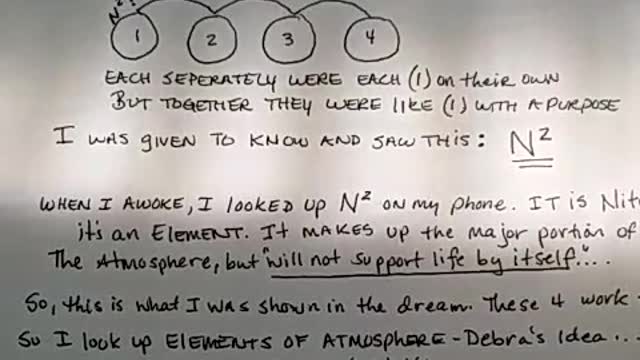 N²
1 2 3 4
EACH SEPERATELY WERE EACH (1) on their own
BUT TOGETHER THEY WERE LIKE (1) WITH A PURPOSE
I WAS GIVEN TO KNOW AND SAW THIS: N²
WHEN I AWOKE, I LOOKED UP N² ON my phone. IT IS Nit
it's AN ELEMENT. It MAKES UP the MAJOR PORTION OF
The Atmosphere, but "will not support life by itself"...
So, this is what I was shown in the dream. These 4 work
So I look up ELEMENTS OF ATMOSPHERE - Debra's Idea...